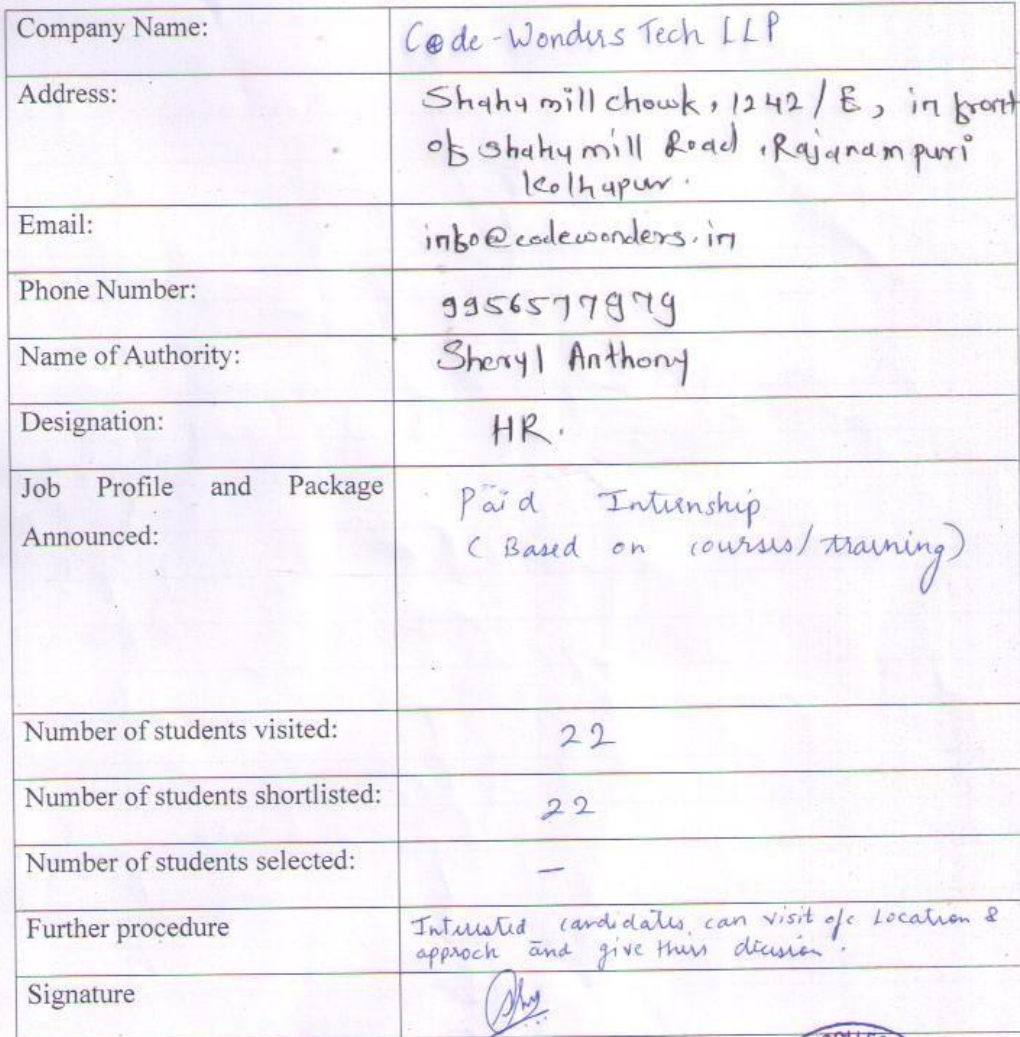 Company Name: Code-Wonders Tech LLP
Address: Shahu mill chowk, 1242/E, in front
of shahu mill Road, Rajarampuri
Kolhapur.
Email: info@codewonders.in
Phone Number: 9956577979
Name of Authority: Sheryl Anthony
Designation: HR.
Job Profile and Package Paid Internship
Announced: (Based on courses/training)
Number of students visited: 22
Number of students shortlisted: 22
Number of students selected: —
Further procedure Interested candidates can visit ofc Location &
approch and give their decision.
Signature